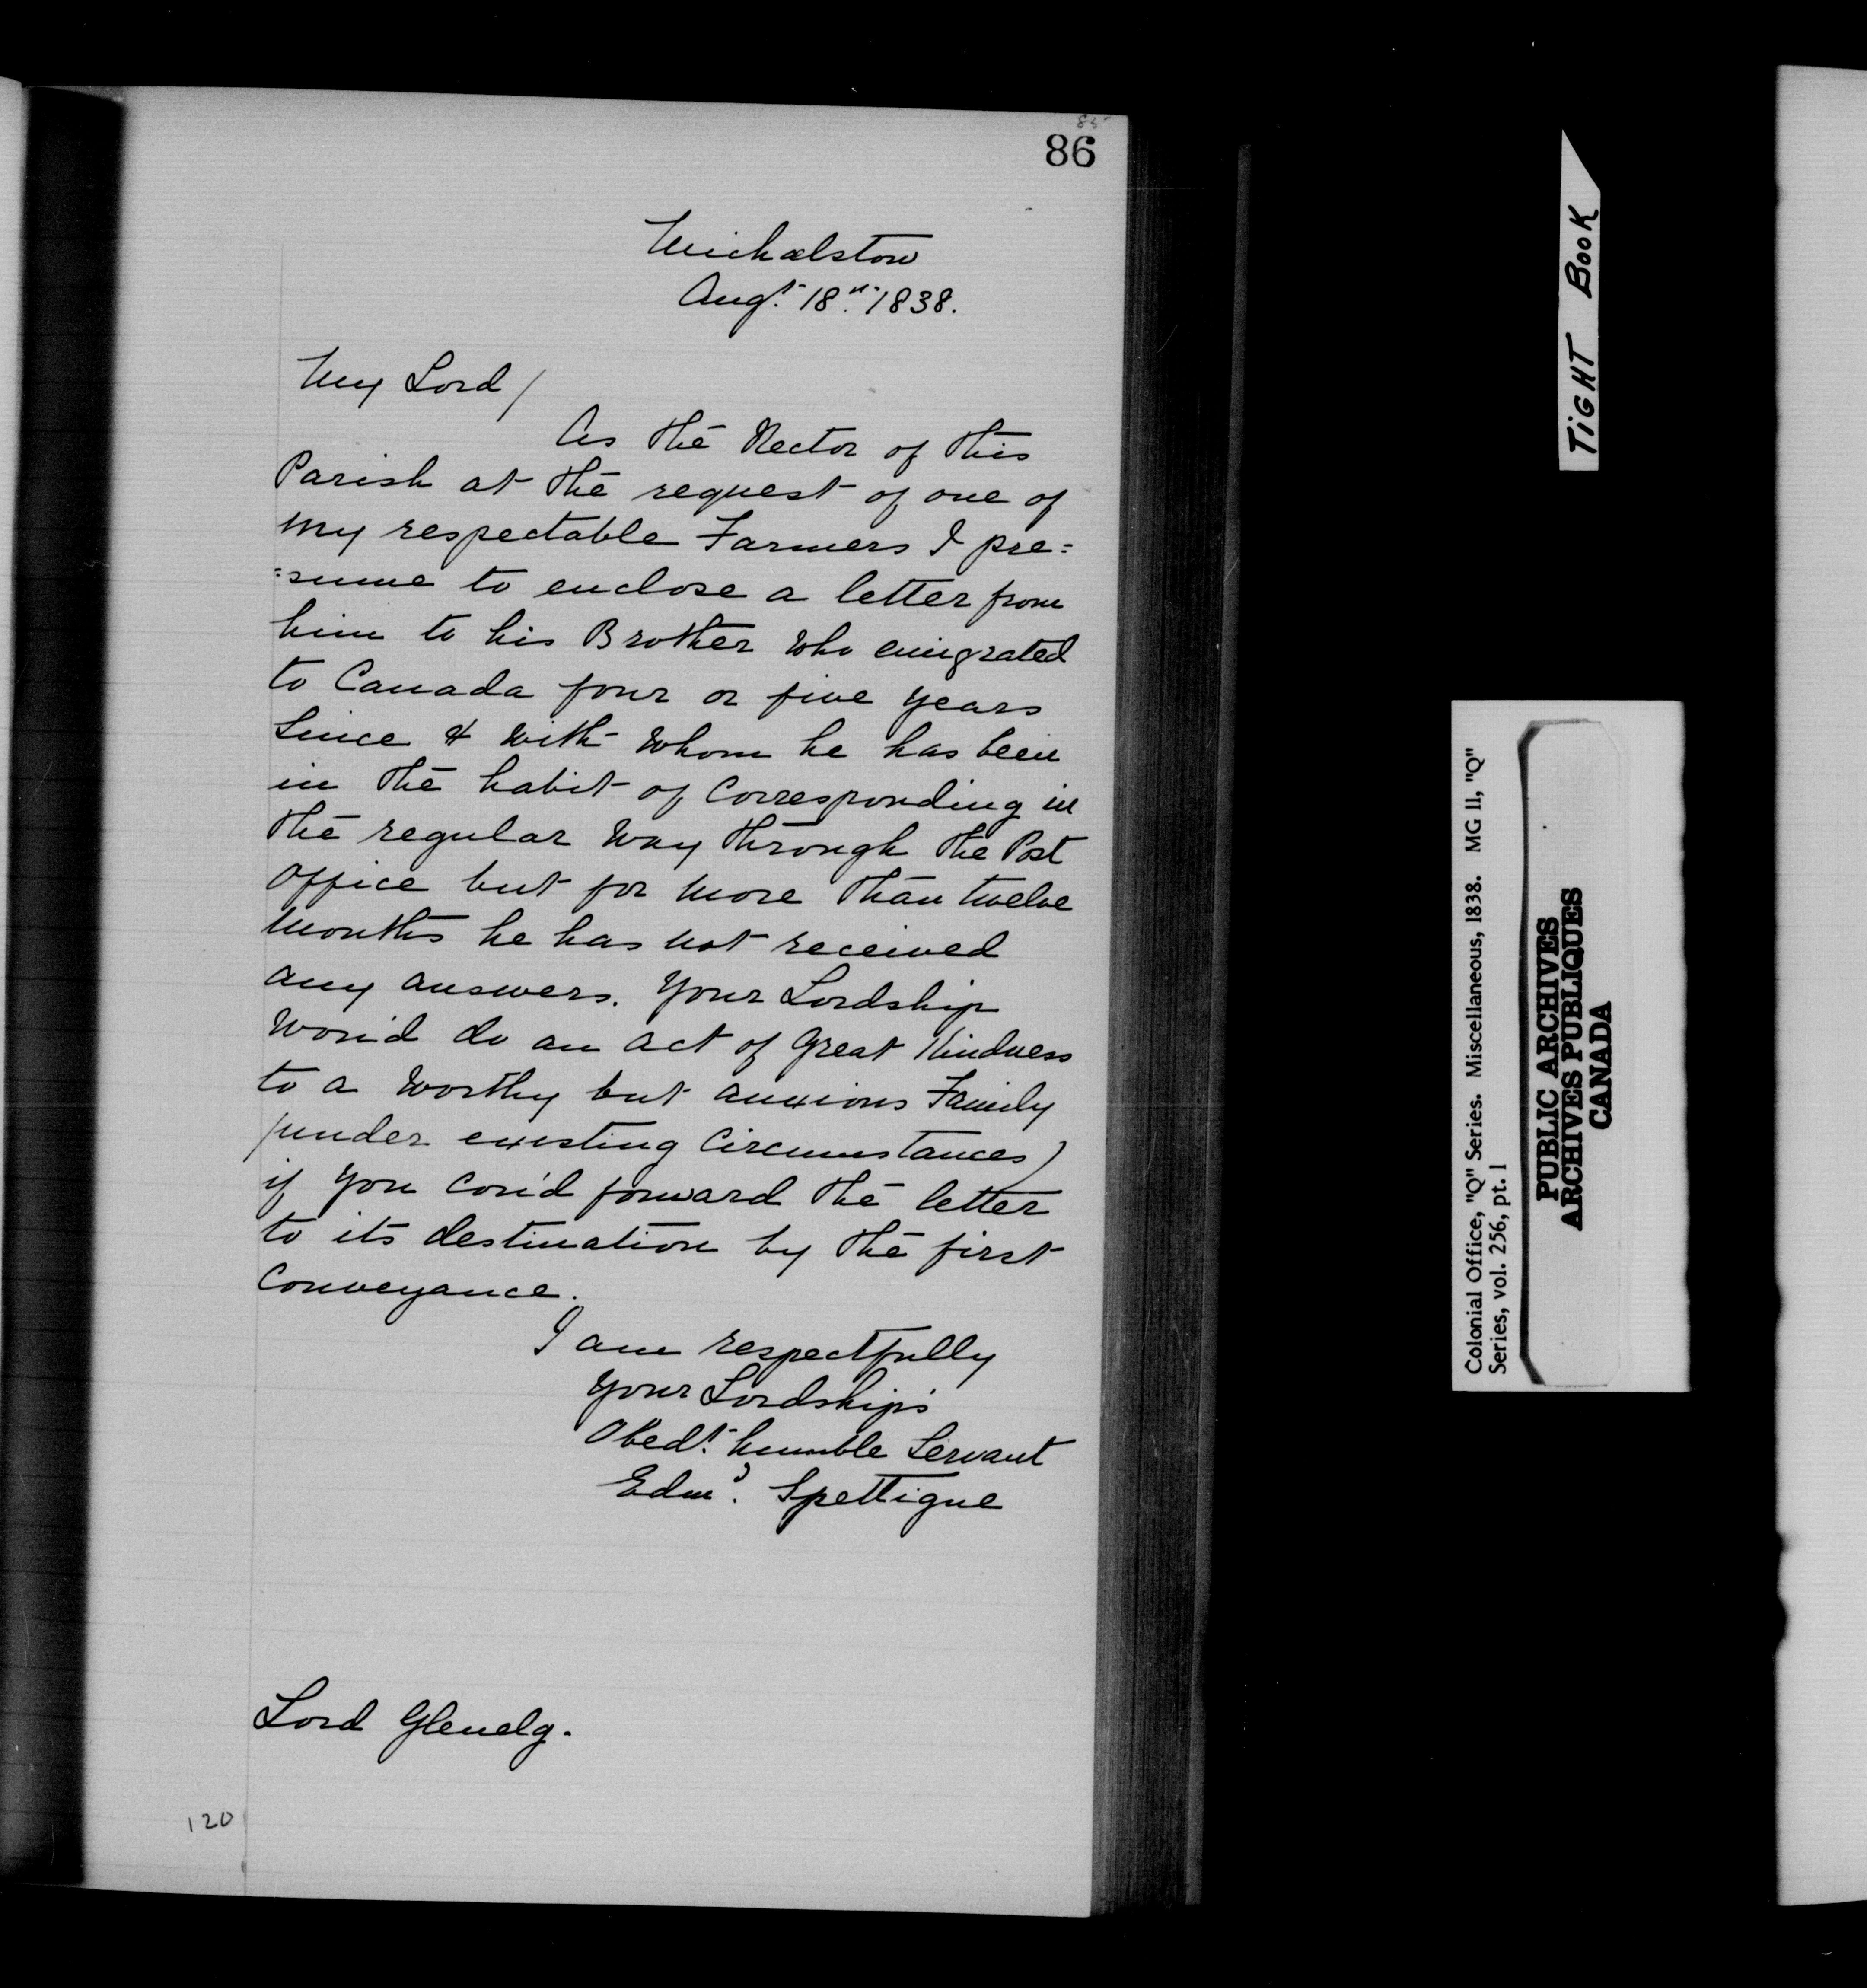 85
86
Michalstow
Augt. 18th. 1838.
My Lord/
As the Rector of this
Parish at the request of one of
my respectable Farmers I pre=
=sume to enclose a letter from
him to his Brother who emigrated
to Canada four or five years
since & with whom he has been
in the habit of corresponding in
the regular way through the Post
office but for more than twelve
months he has not received
any answers. Your Lordship
wou'd do an act of great kindness
to a worthy but anxious Family
(under existing circumstances)
if you cou'd forward the letter
to its destination by the first
conveyance.
I am respectfully
your Lordship's
Obedt. humble Servant
Edmd. Spettigue
Lord Glenelg.
120
TiGHT BOOK
Colonial Office, "Q" Series. Miscellaneous, 1838. MG 11, "Q"
Series, vol. 256, pt. 1
PUBLIC ARCHIVES
ARCHIVES PUBLIQUES
CANADA